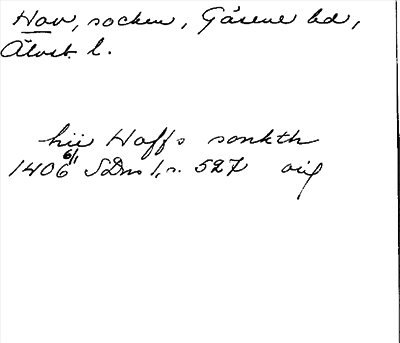 Hov, socken, Gäsene hd,
Älvsb. l.
hii Haffs sonkth
1406 6/1 SDns 1, s. 527 orig